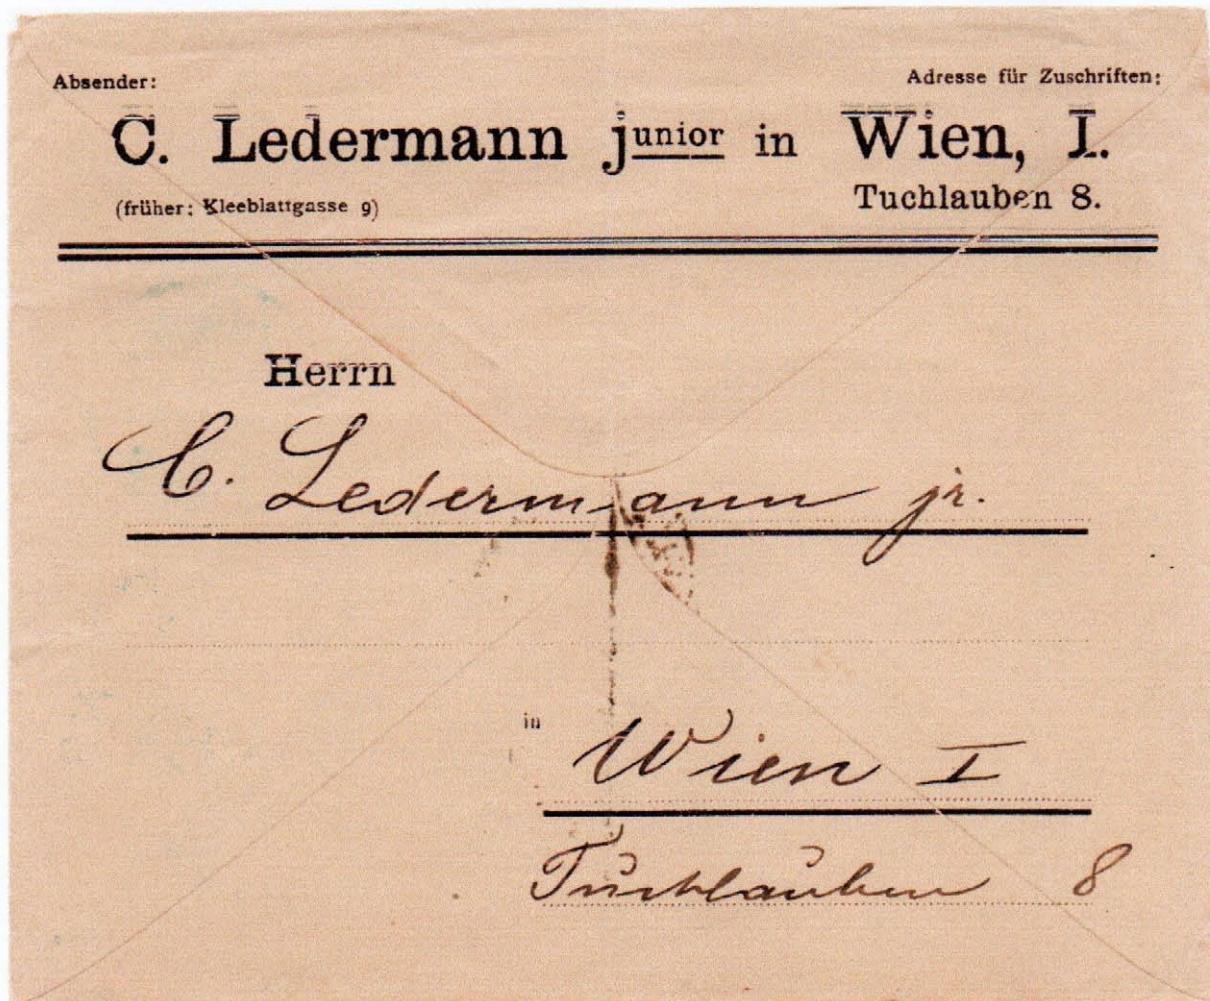 Absender:
Adresse für Zuschriften:
C. Ledermann junior in Wien, I.
(früher: Kleeblattgasse 9)
Tuchlauben 8.
Herrn
C. Ledermann jr.
in
Wien I
Tuchlauben 8